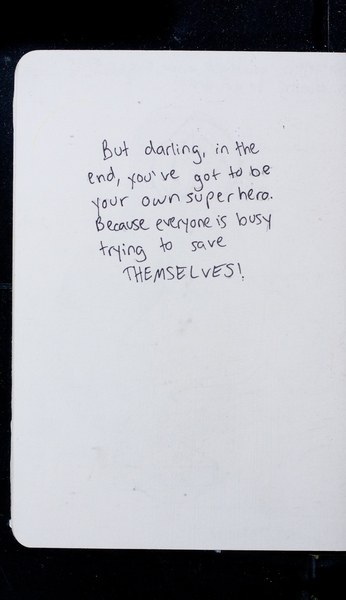 But darling, in the
end, you've got to be
your own superhero.
Because everyone is busy
trying to save
THEMSELVES!